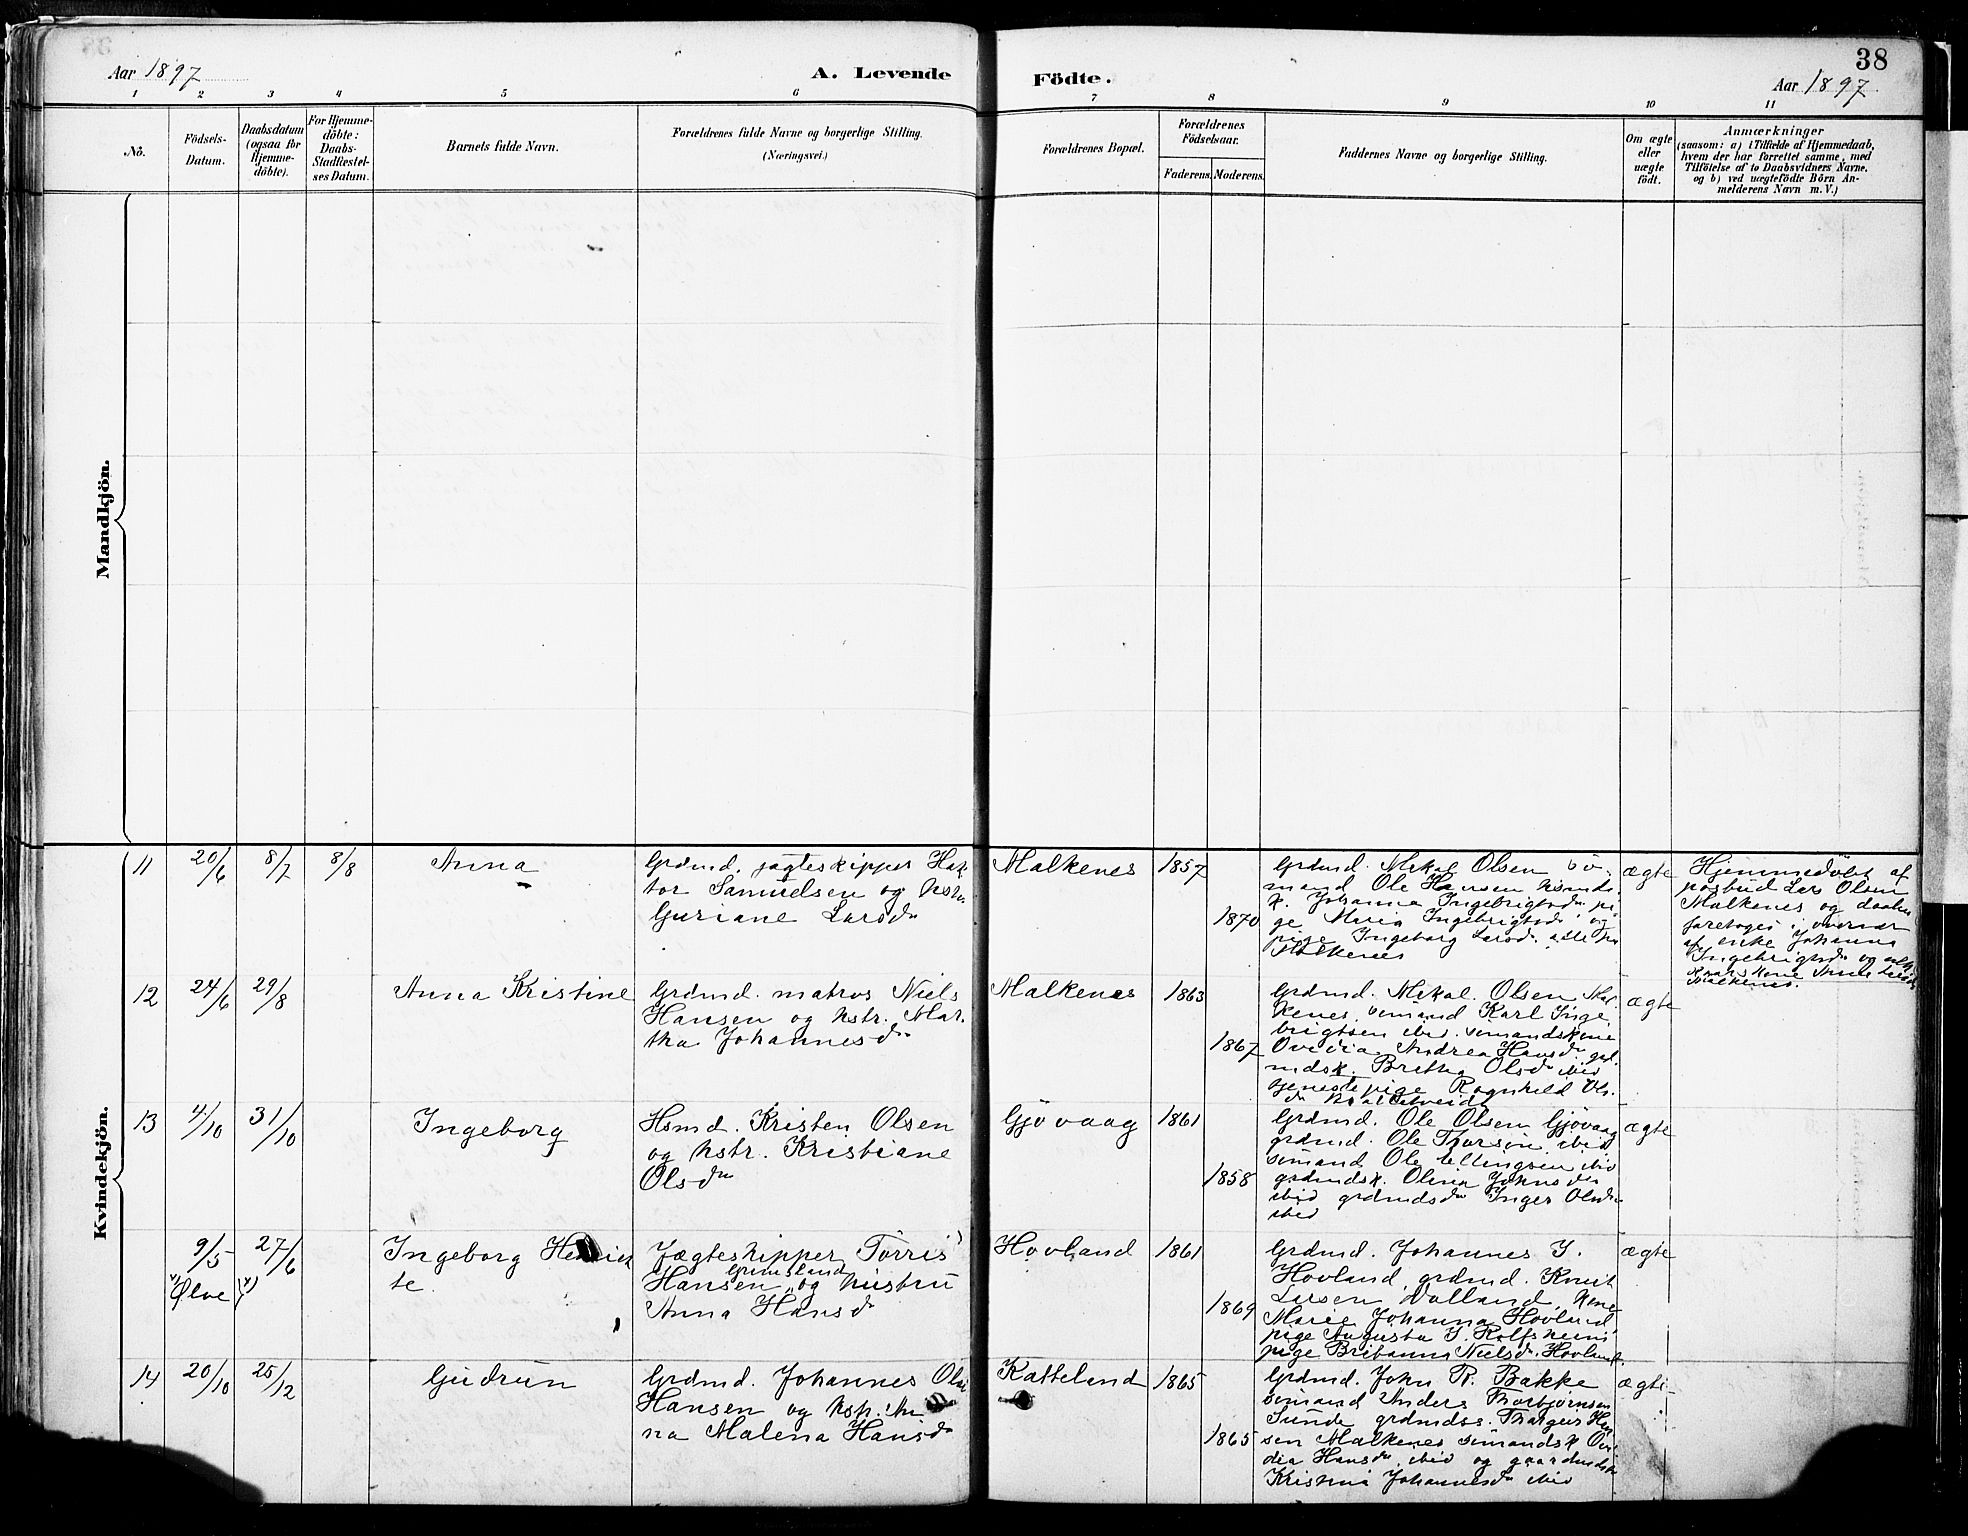 38
Aar 1897
A. Levende
Födte.
Aar 1897.
1 2 3 4 5 6 7 8 9 10 11
No.
Födsels-
Datum.
Daabsdatum
(ogsaa for
Hjemme-
döbte).
For Hjemme-
döbte:
Daabs-
Stadfæstel-
ses Datum.
Barnets fulde Navn.
Forældrenes fulde Navne og borgerlige Stilling.
(Næringsvei.)
Forældrenes Bopæl.
Forældrenes
Födselsaar.
Faderens.
Moderens.
Faddernes Navne og borgerlige Stilling.
Om ægte
eller
uægte
født.
Anmærkninger
(saasom: a) i Tilfælde af Hjemmedaab,
hvem der har forrettet samme, med
Tilføielse af to Daabsvidners Navne,
og b) ved uægtefödte Börn An-
melderens Navn m. V.)
Mandkjön.
Kvindekjön.
11
20/6
8/7
8/8
Anna
Grdmd. jagteskipper Hak
tor Samuelsen og hstr.
Guriane Larsdr
Malkenes
1857
1870
Grdmd. Mikal Olsen sö-
mand Ole Hansen hsmds
k. Johanna Ingebrigtsdr pi
ge Maria Ingebrigtsdr og
pige Ingeborg Larsdr alle fra
Malkenes
ægte
Hjemmedöbt af
posbud Lars Olsen
Malkenes og daaben
foretoges i overvær
af enke Johanna
Ingebrigtsdr og
Malkenes.
12
24/6
29/8
Anna Kristine
Grdmd. matros Niels
Hansen og hstr. Mar-
tha Johannesdr
Malkenes
1863
1867
Grdmd. Mikal Olsen Mal-
kenes, sömand Karl Inge
brigtsen ibid. sömandskone
Ovidia Andrea Hansdr grd-
mdsk. Britha Olsdr ibid
tjenestepige Ragnhild Ols-
dr
ægte
13
4/10
31/10
Ingeborg
Hsmd. Kristen Olsen
og hstr. Kristiane
Olsdr
Gjövaag
1861
1858
Grdmd. Ole Olsen Gjövaag
grdmd. Ole Thorsen ibid
sömand Ole Ellingsen ibid
grdmdsk. Olina Johnsdr
ibid grdmdsdr Inger Olsdr
ibid
ægte
9/5
x) Ølve
27/6
x)
Ingeborg Henriet
te.
Jægteskipper Torris
Grimsland
Hansen og hustru
Anna Hansdr
Hovland
1861
1869
Grdmd. Johannes J.
Hovland, grdmd. Knut
Larsen Dalland, kone
Marie Johanna Hovland
pige Augusta J. Rolfsheim
pige Britanna Nielsdr Hovland.
ægte
14
20/10
25/12
Gudrun
Grdmd. Johannes Olai
Hansen og hstr. An
na Malena Hansdr
Katteland
1865
1865
Grdmd. John R. Bakke
sömand Anders Thorbjørnsen
Sunde grdmdss. Thorgeir Han
sen Malkenes sömandsk Ovi
dia Hansdr ibid og gaardmdsk
Kristina Johannesdr ibid
ægte